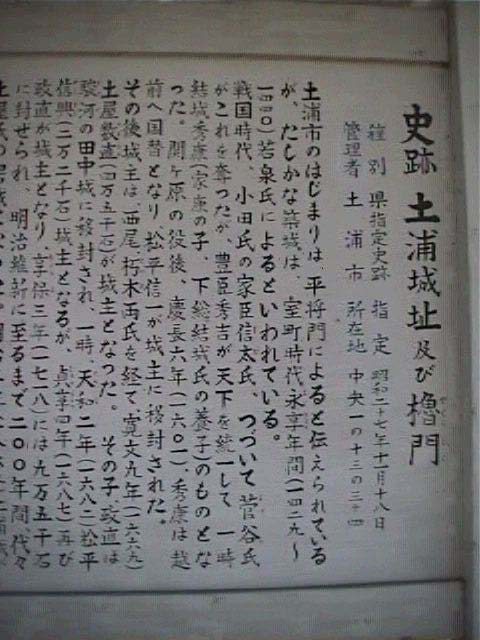 史跡 土浦城址及び櫓門
種別 県指定史跡 指定 昭和二十七年十一月十八日
管理者 土浦市 所在地 中央一の十三の三十四
土浦市のはじまりは、平将門によると伝えられている
が、たしかな築城は、室町時代永享年間(一四二九〜
一四四〇)若泉氏によるといわれている。
戦国時代、小田氏の家臣信太氏、つづいて菅谷氏
がこれを奪つたが、豊臣秀吉が天下を統一して、一時
結城秀康(家康の子、下総結城氏の養子)のものとな
つた。関ヶ原の役後、慶長六年(一六〇一)、秀康は越
前へ国替となり、松平信一が城主に移封された。
その後城主は、西尾、朽木両氏を経て寛文九年(一六六九)
土屋数直(四万五千石)が城主となつた。その子政直は
駿河の田中城に移封され、一時、天和二年(一六八二)松平
信興(二万二千石)城主となるが、貞享四年(一六八七)再び
政直が城主となり、享保三年(一七一八)には九万五千石
に封せられ、明治維新に至るまで二〇〇年間代々